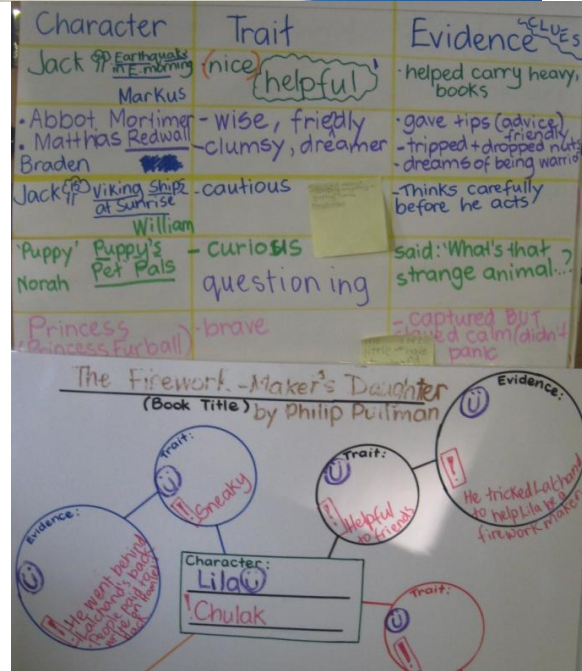 Character Trait Evidence CLUES
Jack Earthquake in E. morning
Markus
(nice)
helpful
·helped carry heavy, books
·Abbot Mortimer
·Matthias Redwall
Braden
- wise, friedly
-clumsy, dreamer
·gave tips (advice)
friendly
-tripped + dropped nuts
-dreams of being warrio
Jack Viking Ships at Sunrise
William
-cautious
-Thinks carefully
before he acts)
'Puppy' Puppy's
Pet Pals
Norah
- curiosus
questioning
said: 'What's that
strange animal...?
Princess
(Princess Furball)
-brave
- captured BUT
stayed calm (didn't
panic
The Firework-Maker's Daughter
(Book Title) by Philip Pullman
Evidence:
He tricked Lalchand
to help Lila be a
firework maker
Trait:
Sneaky
Trait:
Helpful
to friends
Evidence:
He went behind
Lalchand's back
People paid to
Character:
Lila
Chulak
Trait: